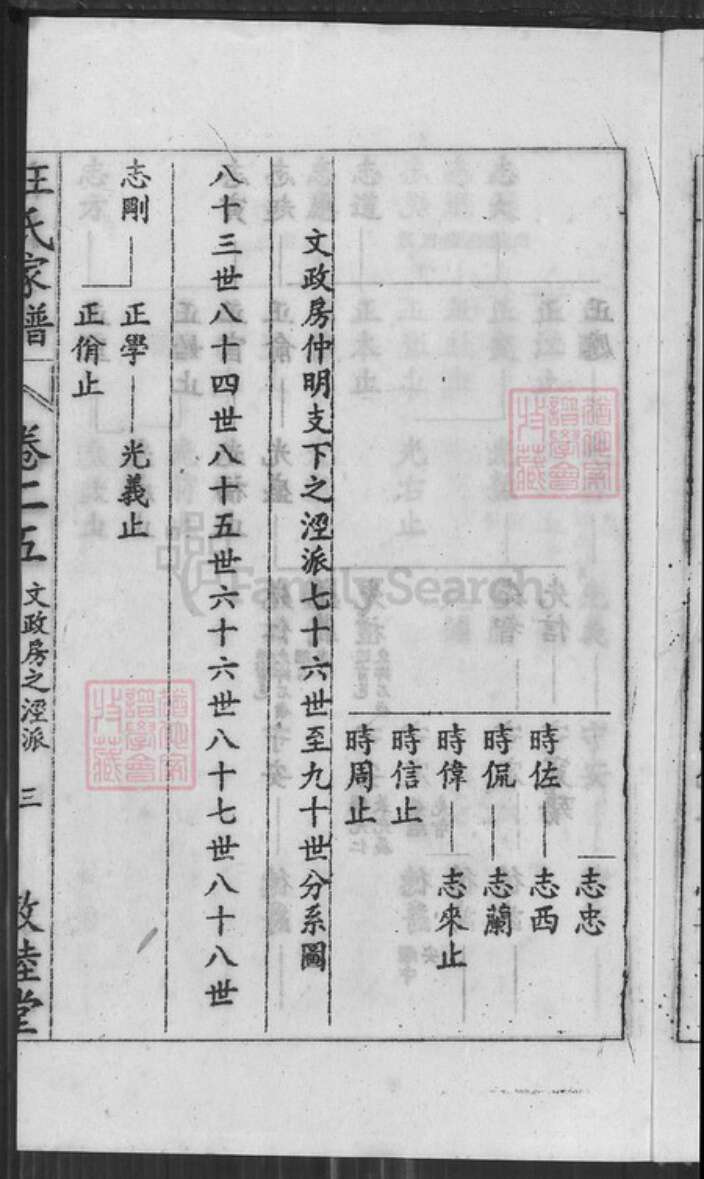 志忠
時佐 志西
時侃 志蘭
時偉 志來止
時信止
時周止
文政房仲明支下之溼派七十六世至九十世分系圖
八十三世八十四世八十五世六十六世八十七世八十八世
志剛 正學 光義止
正脩止
汪氏家譜 卷二五 文政房之溼派 三 敦睦堂
譜學會
收藏
譜學會
收藏
FamilySearch